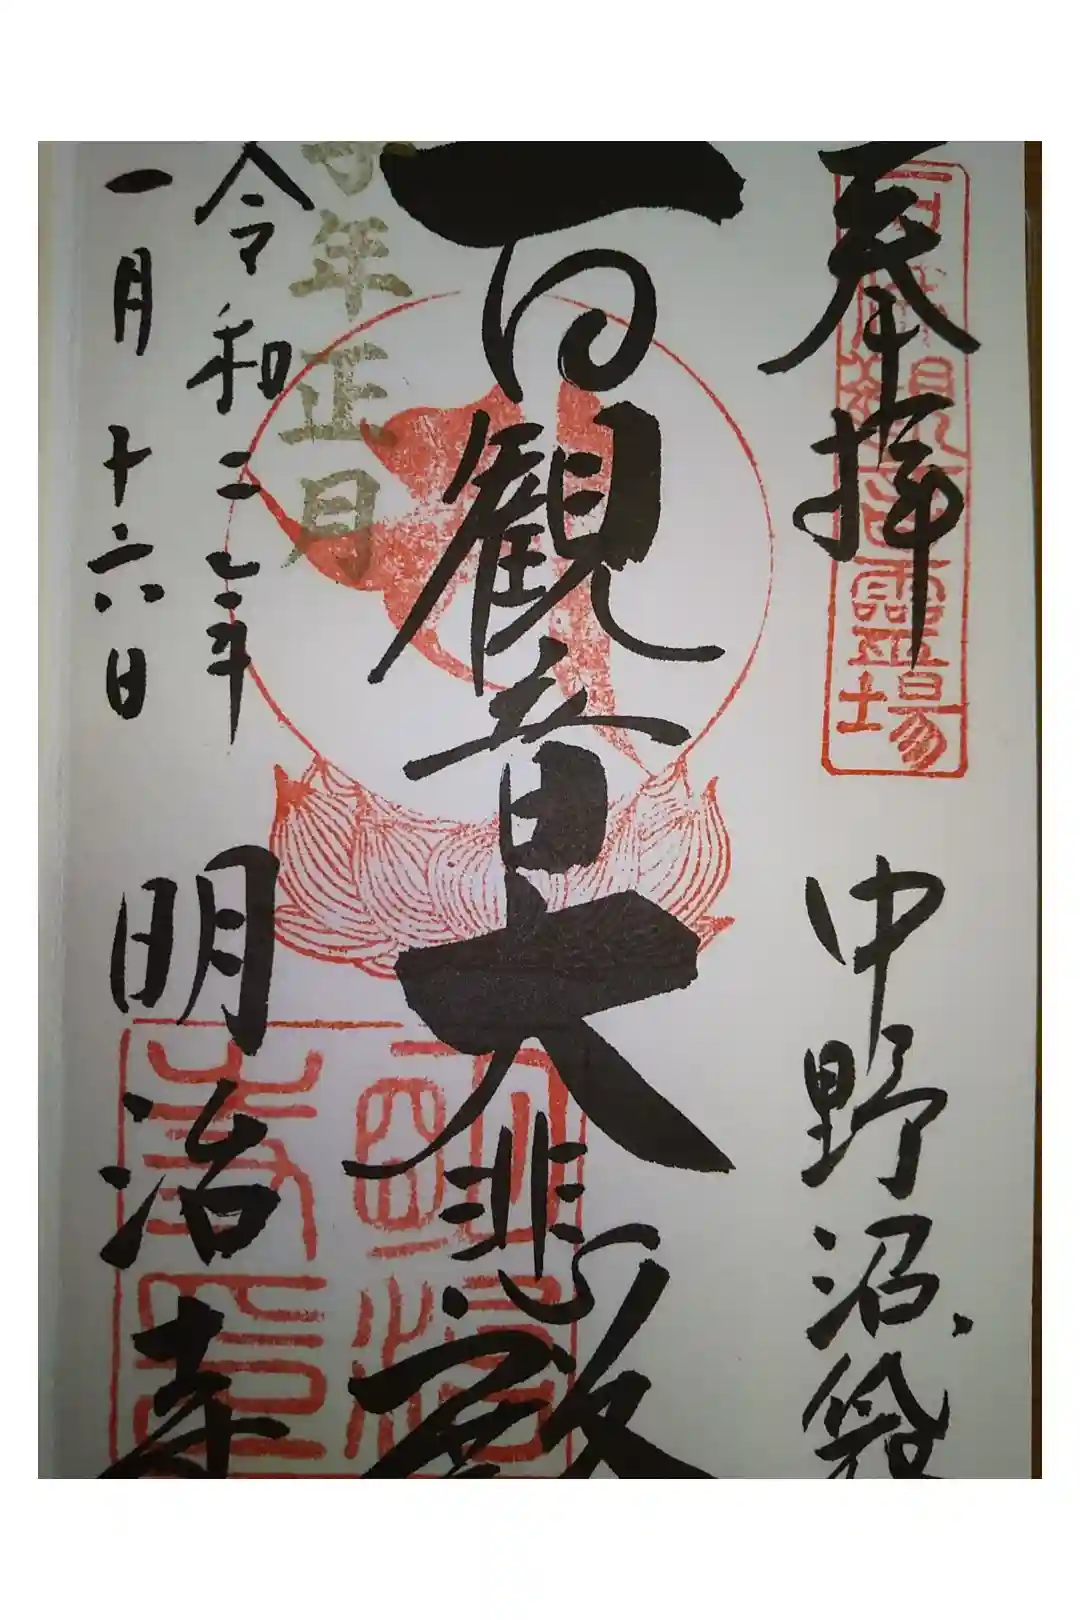 奉拝
中野沼袋
百観音大悲殿
年正月
令和二年
一月十六日
明治寺
霊場